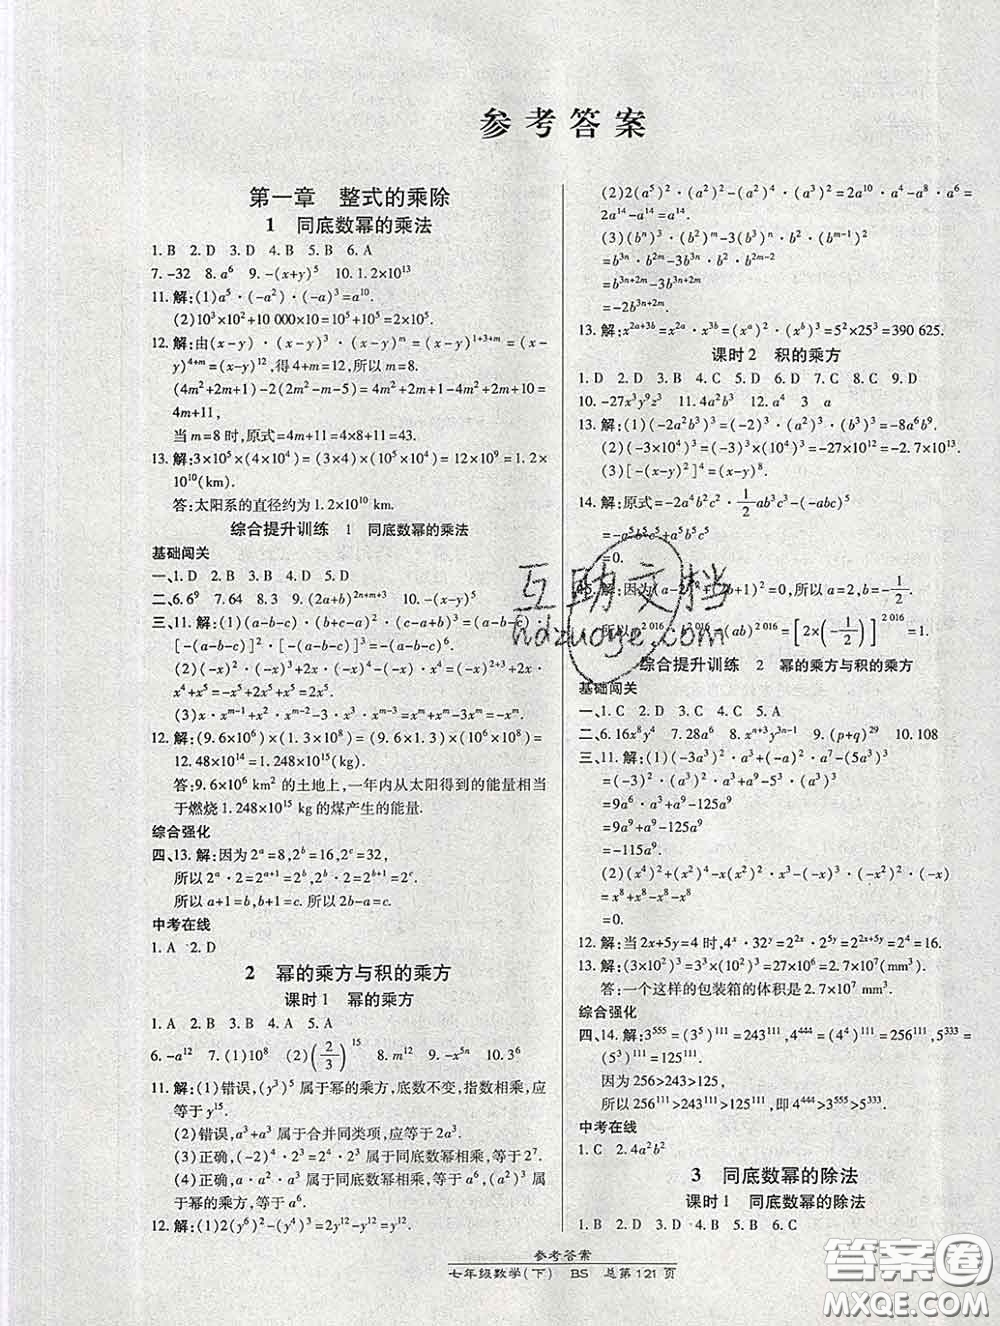 参考答案
第一章 整式的乘除
1 同底数幂的乘法
1. B 2. D 3. D 4. B 5. B 6. A
7. -32 8. a⁶ 9. -(x+y)⁵ 10. 1.2×10¹³
11. 解:(1)a⁵·(-a²)·(-a)³=a¹⁰.
(2)10³×10²+10 000×10=10⁵+10⁵=2×10⁵.
12. 解:由(x-y)·(x-y)³·(x-y)ᵐ=(x-y)¹⁺³⁺ᵐ=(x-
y)⁴⁺ᵐ=(x-y)¹²,得4+m=12,所以m=8.
(4m²+2m+1)-2(2m²-m-5)=4m²+2m+1-4m²+2m+10=
4m+11,
当m=8时,原式=4m+11=4×8+11=43.
13. 解:3×10⁵×(4×10⁴)=(3×4)×(10⁵×10⁴)=12×10⁹=1.2×
10¹⁰(km).
答:太阳系的直径约为1.2×10¹⁰ km.
综合提升训练 1 同底数幂的乘法
基础闯关
一、1. D 2. D 3. B 4. D 5. D
二、6. 6⁹ 7. 64 8. 3 9. (2a+b)²ⁿ⁺ᵐ⁺³ 10. -(x-y)⁶
三、11. 解:(1)(a-b-c)·(b+c-a)²·(c-a+b)³=(a-b-c)·
[-(a-b-c)]²·[-(a-b-c)]³=-(a-b-c)⁶.
(2)(-x)²·(-x)³+2x·(-x)⁴-(-x)·x⁴=(-x)⁵+2x·
x⁴+x⁵=-x⁵+2x⁵+x⁵=2x⁵.
(3)x·xᵐ⁻¹+x²·xᵐ⁻²-3·x³·xᵐ⁻³=xᵐ+xᵐ-3xᵐ=-xᵐ.
12. 解:(9.6×10⁶)×(1.3×10⁸)=(9.6×1.3)×(10⁶×10⁸)=
12.48×10¹⁴=1.248×10¹⁵(kg).
答:9.6×10⁶ km²的土地上,一年内从太阳得到的能量相当
于燃烧1.248×10¹⁵ kg的煤产生的能量.
综合强化
四、13. 解:因为2ᵃ=8,2ᵇ=16,2ᶜ=32,
所以2ᵃ·2=2ᵃ⁺¹=2ᵇ,2ᵇ·2=2ᵇ⁺¹=2ᶜ.
所以a+1=b,b+1=c.所以2b-a=c.
中考在线
1. A 2. D
2 幂的乘方与积的乘方
课时1 幂的乘方
1. A 2. A 3. B 4. A 5. A
6. -a¹² 7. (1)10⁸ (2)(2/3)¹⁵ 8. m¹² 9. -x⁵ⁿ 10. 3⁶
11. 解:(1)错误,(y³)⁵属于幂的乘方,底数不变,指数相乘,应
等于y¹⁵.
(2)错误,a³+a³属于合并同类项,应等于2a³.
(3)正确,(-2)⁴·2³=2⁴·2³属于同底数幂相乘,等于2⁷.
(4)正确,a²·a⁴属于同底数幂相乘,等于a⁶,(a²)³属
于幂的乘方,等于a⁶.
12. 解:(1)2(y⁶)²-(y⁴)³=2y¹²-y¹²=y¹².
(2)2(a⁵)²·(a²)²-(a²)⁴·(a²)³=2a¹⁰·a⁴-a⁸·a⁶=
2a¹⁴-a¹⁴=a¹⁴.
(3)(bⁿ)³·(b²)ᵐ-3(b³)ⁿ·b²·(bᵐ⁻¹)²
=b³ⁿ·b²ᵐ-3b³ⁿ·b²·b²ᵐ⁻²
=b³ⁿ⁺²ᵐ-3b³ⁿ⁺²ᵐ
=-2b³ⁿ⁺²ᵐ.
13. 解:x²ᵃ⁺³ᵇ=x²ᵃ·x³ᵇ=(xᵃ)²·(xᵇ)³=5²×25³=390 625.
课时2 积的乘方
1. D 2. D 3. C 4. C 5. D 6. D 7. C 8. C 9. D
10. -27x³y⁹z³ 11. 4a²b³ 12. a⁴ 3 a
13. 解:(1)(-2a²b³)³=(-2)³·(a²)³·(b³)³=-8a⁶b⁹.
(2)(-3×10⁴)³=(-3)³×(10⁴)³=-27×10¹²=-2.7×10¹³.
(3)[-(x-y)²]⁴=(x-y)⁸.
14. 解:原式=-2a⁴b²c²·1/2ab³c³-(-abc)⁵
=-a⁵b⁵c⁵+a⁵b⁵c⁵
=0.
15. 解:因为 =0,所以a=2,b=-1/2.
所以 (ab)²⁰¹⁶=[2×(-1/2)]²⁰¹⁶=1.
综合提升训练 2 幂的乘方与积的乘方
基础闯关
一、1. C 2. D 3. C 4. C 5. A
二、6. 16x⁸y⁴ 7. 28a⁶ 8. xⁿ⁺³y³ⁿ⁻¹ 9. (p+q)²⁹ 10. 108
三、11. 解:(1)(-3a³)²·a³+(-a)²·a⁷-(5a³)³
=(-3)²·(a³)²·a³+a⁹-5³·(a³)³
=9a⁶·a³+a⁹-125a⁹
=9a⁹+a⁹-125a⁹
=-115a⁹.
(2)(x⁴)²+(x²)⁴-x(x²)²·x³-(-x)³·(-x²)²·(-x)
=x⁸+x⁸-x⁸-x⁸
=0.
12. 解:当2x+5y=4时,4ˣ·32ʸ=2²ˣ·2⁵ʸ=2²ˣ⁺⁵ʸ=2⁴=16.
13. 解:(3×10²)³=3³×(10²)³=27×10⁶=2.7×10⁷(mm³).
答:一个这样的包装箱的体积是2.7×10⁷ mm³.
综合强化
四、14. 解:3⁵⁵⁵=(3⁵)¹¹¹=243¹¹¹,4⁴⁴⁴=(4⁴)¹¹¹=256¹¹¹,5³³³=
(5³)¹¹¹=125¹¹¹.
因为256>243>125,
所以256¹¹¹>243¹¹¹>125¹¹¹,即4⁴⁴⁴>3⁵⁵⁵>5³³³.
中考在线
1. C 2. 4a²b²
3 同底数幂的除法
课时1 同底数幂的除法
1. B 2. D 3. D 4. B 5. B 6. C
参考答案
七年级数学(下) BS 总第121页
互助文档
hdzuoye.com
答案圈
MXQE.COM